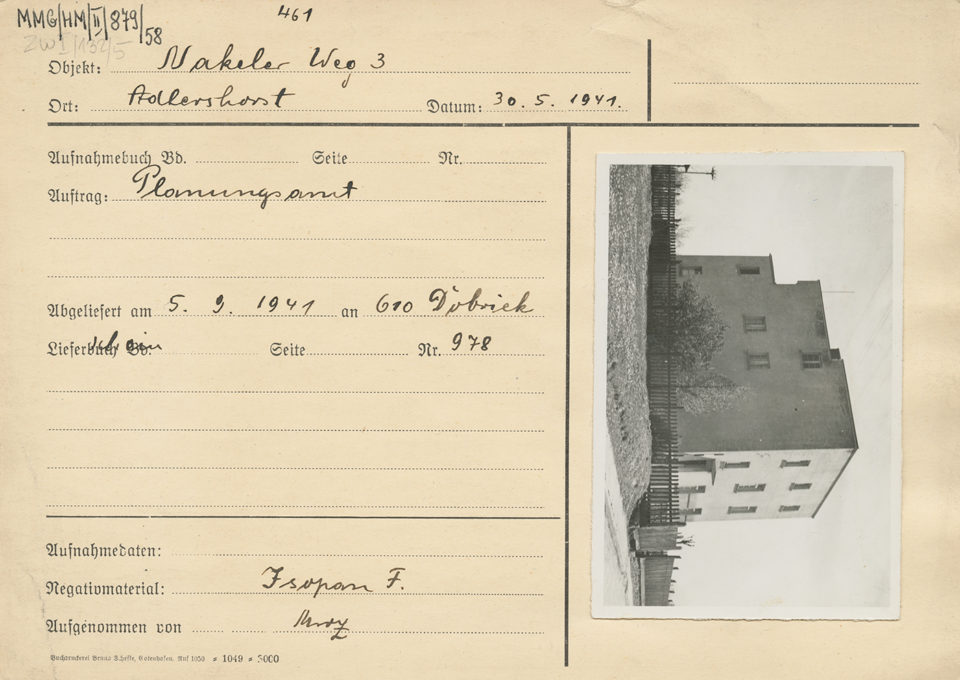 MMG/HM/II/879/58
461
ZW I/132/5
Objekt: Nakeler Weg 3
Ort: Adlershorst Datum: 30. 5. 1941.
Aufnahmebuch Bd. Seite Nr.
Auftrag: Planungsamt
Abgeliefert am 5. 9. 1941 an 610 Dobrick
Lieferbuch Bd. Seite Nr. 978
Aufnahmedaten:
Negativmaterial: Isopan F.
Aufgenommen von
Buchdruckerei Bruno Gotenhafen. Ruf 1050 = 1049 = 5000